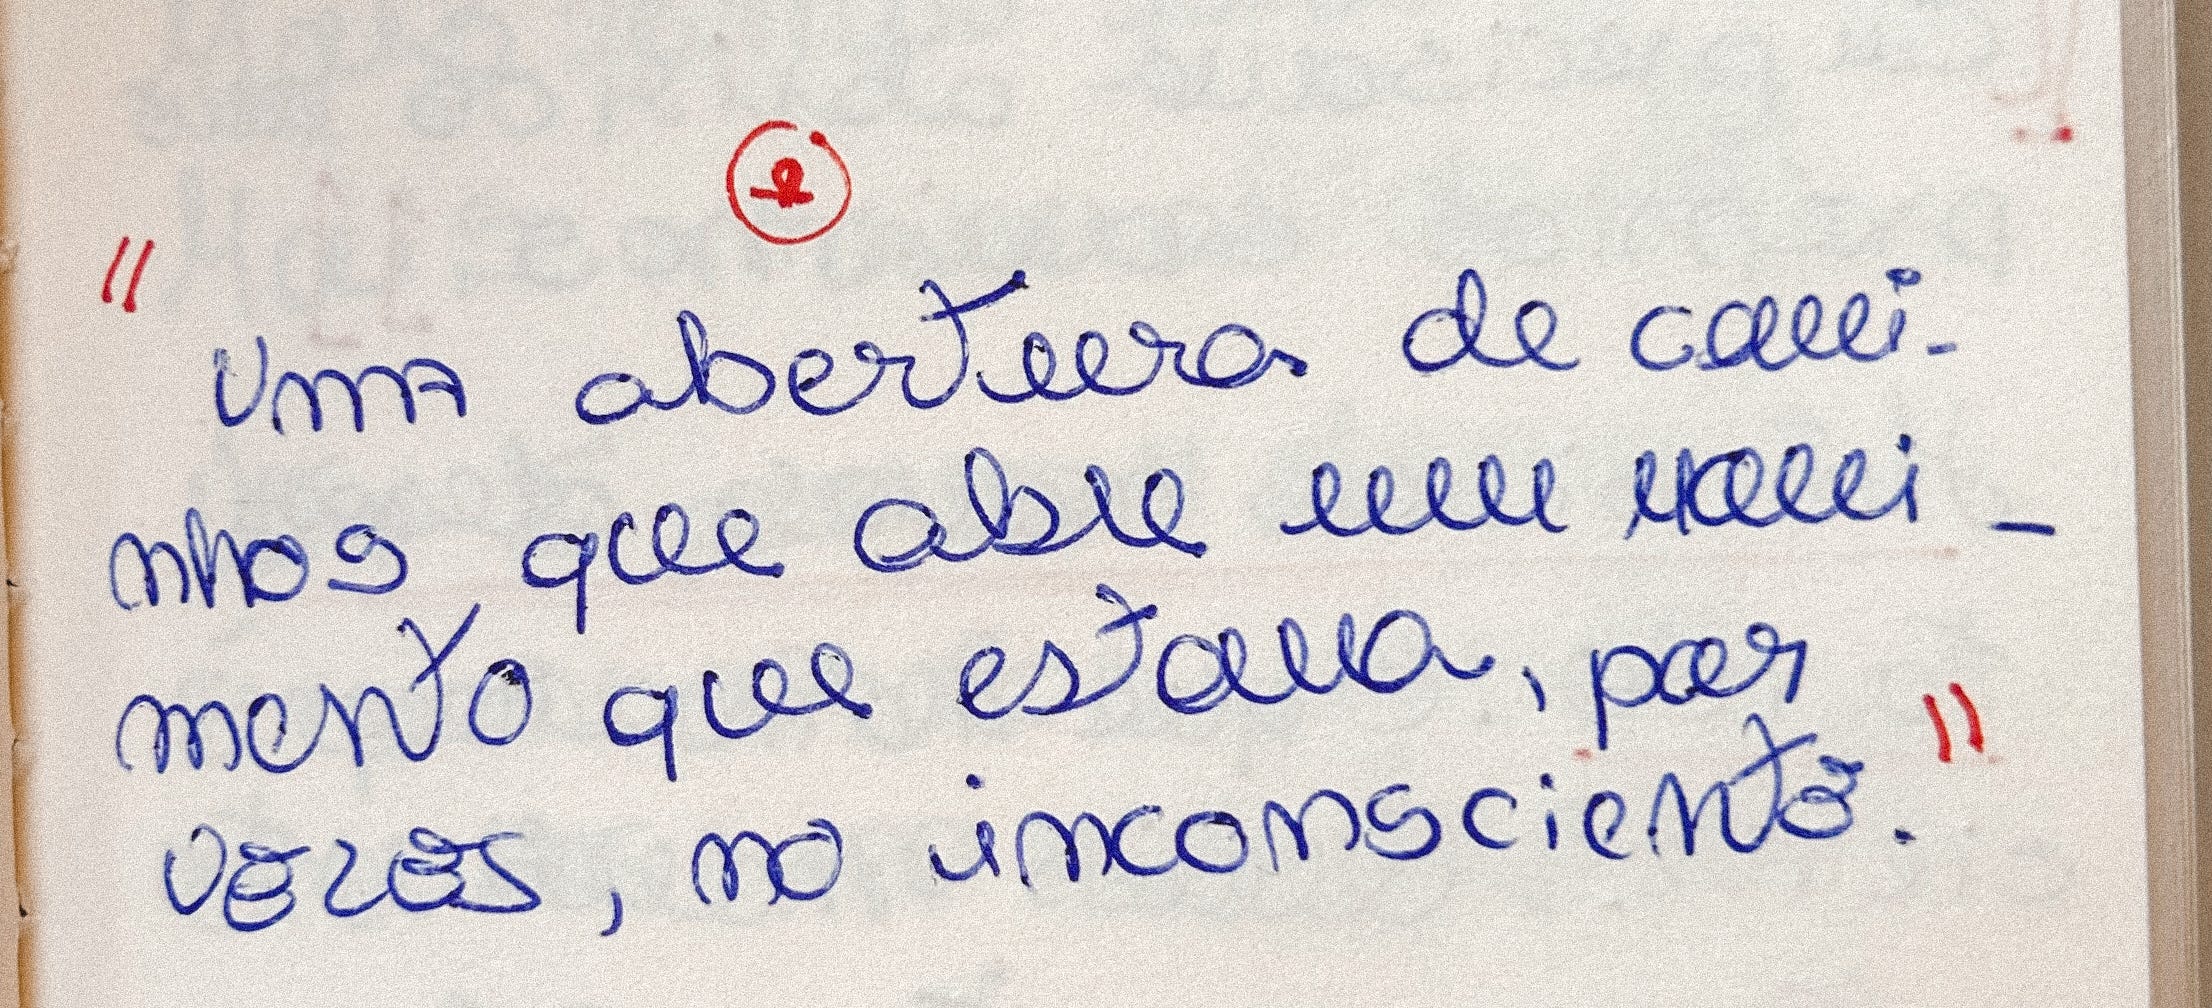 "Uma abertura de cami-
nhos, que abre um movi-
mento que estava, por
vezes, no inconsciente."